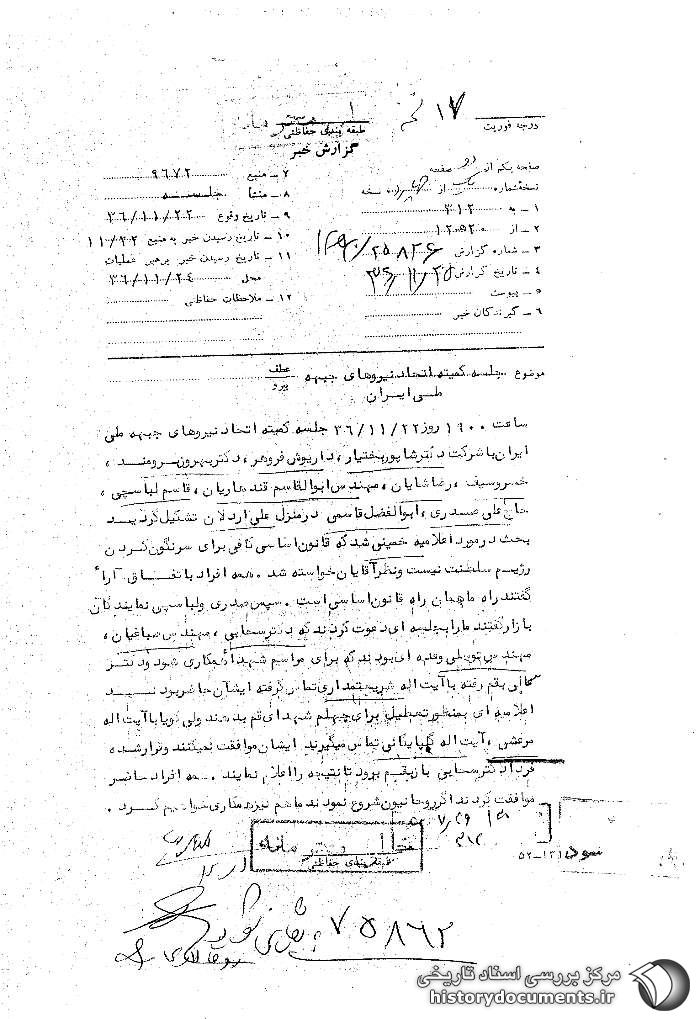 درجه فوریت
۱۷
طبقه بندی حفاظتی
گزارش خبر
صفحه یکم از دو صفحه
نسخه شماره یک از نسخه
۱ - به ۳۱۲
۲ - از ۲۰ ه ۱۲
۳ - شماره گزارش ۲۵۸۲۶
۴ - تاریخ گزارش
۵ - پیوست
۶ - گیرندگان خبر
۷ - منبع ۹۶۷۲
۸ - منشأ جلسه
۹ - تاریخ وقوع ۳۶/۱۱/۲۲
۱۰ - تاریخ رسیدن خبر به منبع ۱۱/۲۲
۱۱ - تاریخ رسیدن خبر برهبر عملیات
محل ۳۶/۱۱/۲۴
۱۲ - ملاحظات حفاظتی
موضوع جلسه کمیته اتحاد نیروهای جبهه
ملی ایران
عطف
پیرو
ساعت ۱۹۰۰ روز ۳۶/۱۱/۲۲ جلسه کمیته اتحاد نیروهای جبهه ملی
ایران با شرکت دکتر شاپور بختیار، داریوش فروهر، دکتر بهرون برومند،
خسرو سیف، رضا شایان، مهندس ابوالقاسم قندهاریان، قاسم لباسچی،
حاج علی صدری، ابوالفضل قاسمی در منزل علی اردلان تشکیل گردید
بحث در مورد اعلامیه خمینی شد که قانون اساسی کافی برای سرنگون کردن
رژیم سلطنت نیست و نظر آقایان خواسته شد. همه افراد با تفاق آراء
گفتند راه ما همان راه قانون اساسی است. سپس صدری و لباسچی نمایندگان
بازار گفتند ما را بجلسه ای دعوت کردند که دکتر سحابی، مهندس صباغیان،
مهندس توسلی وعده ای بودند که برای مراسم شهدا همکاری شود و دکتر
سحابی بقم رفته با آیت اله شریعتمداری تماس گرفته ایشان حاضر بودند
اعلامیه ای بمنظور تعطیل برای چهلم شهدای قم بدهند ولی گویا با آیت اله
مرعشی، آیت اله گلپایگانی تماس میگیرند ایشان موافقت نمیکنند و قرار شده
فردا دکتر سحابی باز بقم برود تا نتیجه را اعلام نمایند. همه افراد حاضر
موافقت کردند اگر روحانیون شروع نمودند ما هم نیز همکاری خواهیم کرد.
طبقه بندی حفاظتی
۳۱۲
۵۲-۱۳۱
۷۵۸۶۲
مرکز بررسی اسناد تاریخی
historydocuments.ir